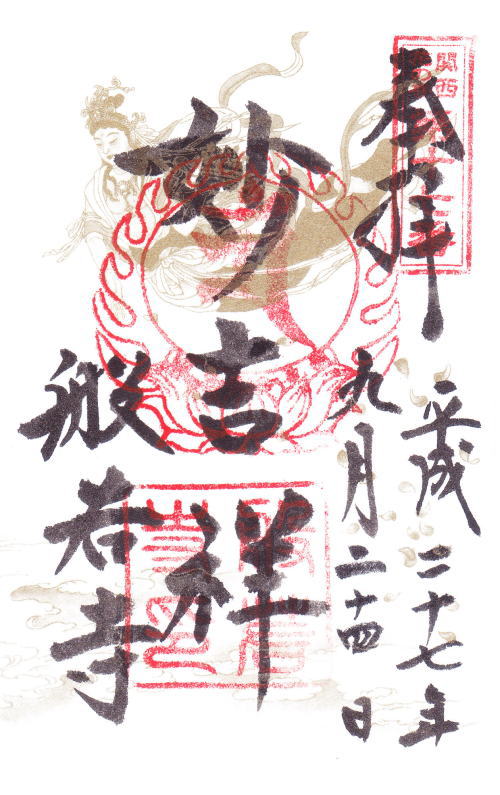 奉拝
平成二十七年
九月二十四日
妙吉祥
般若寺
関西